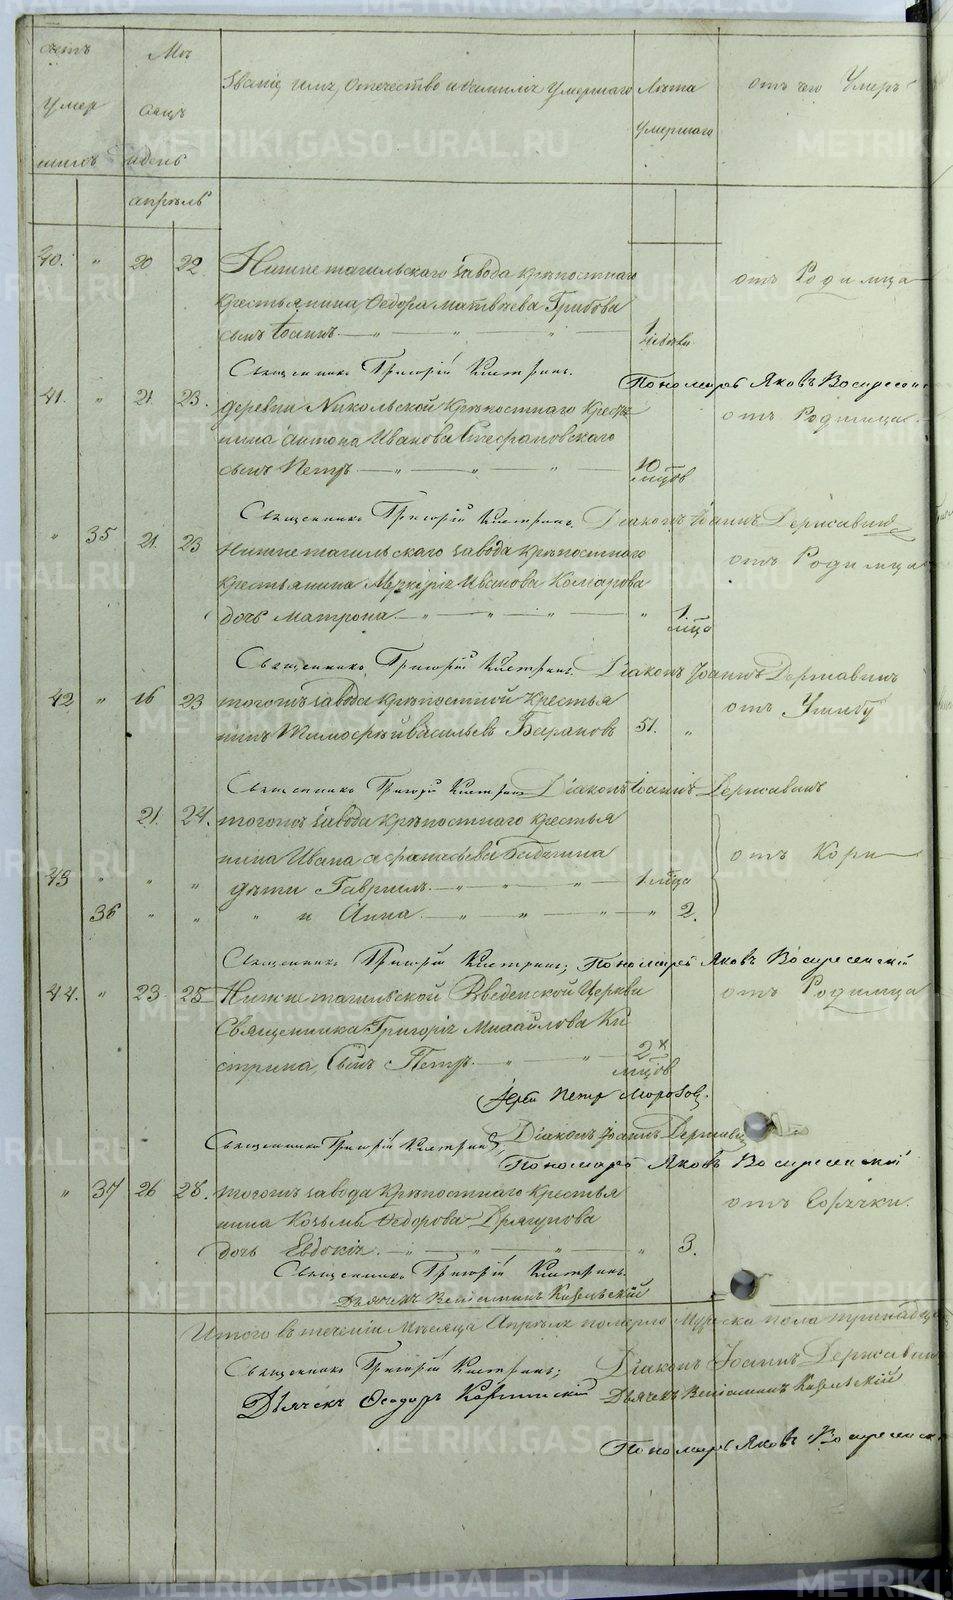 счетъ умершихъ
Мѣсяцъ и день
Званіе, имя, отечество и фамилія умершаго
Лѣта умершаго
отъ чего умеръ
апрѣль
40. " 20 22. Нижнетагильскаго завода крѣпостнаго
крестьянина Ѳедора Матвѣева Грибова
сынъ Іоаннъ — " — " — " — 1
отъ Родимца
Священникъ Григорій Кистринъ. Пономарь Яковъ Воскресен
41. " 21. 23. деревни Никольской крѣпостнаго кресть
нина Антона Иванова Стефановскаго
сынъ Петръ — " — " — " — 10 мцов
отъ Родимца
Священникъ Григорій Кистринъ, Діаконъ Іоаннъ Державинъ
" 35 21. 23 Нижнетагильскаго завода крѣпостнаго
крестьянина Меркурія Иванова Комарова
дочь Матрона — " — " — " — " 1. мца
отъ Родимца
Священникъ Григорій Кистринъ. Діаконъ Іоаннъ Державинъ
42 " 16 23 тогожъ завода крѣпостной крестья
нинъ Тимофѣй Васильевъ Барановъ 51. "
отъ Ушибу
Священникъ Григорій Кистринъ Діаконъ Іоаннъ Державинъ
21. 24. тогожъ завода крѣпостнаго крестья
нина Ивана Афанасьева
43 " " " дѣти Гавріилъ — " — " — " — 1 мца
отъ Кори
36 " " " и Анна — " — " — " — " 2.
Священникъ Григорій Кистринъ; Пономарь Яковъ Воскресенскій
44. " 23 25 Нижнетагильской Введенской Церкви
Священника Григорія Михайлова Ки
стрина, Сынъ Петръ — " — " — 2х мцов
отъ Родимца
Іерей Петръ Морозовъ.
Діаконъ Іоаннъ Державин
Священникъ Григорій Кистринъ,
Пономарь Яковъ Воскресенскій
" 37 26 28. тогожъ завода крѣпостнаго крестья
нина Козьмы Ѳедорова Драгунова
дочь Евдокія — " — " — " — " 3.
отъ Горячки.
Священникъ Григорій Кистринъ.
Дьячекъ Веніаминъ Кисельскій
Итого въ теченіи Мѣсяца Апрѣля померло Мужеска пола тринадца
Священникъ Григорій Кистринъ; Діаконъ Іоаннъ Державин
Дьячекъ Ѳеодоръ Дьячекъ Веніаминъ Кисельскій
Пономарь Яковъ Воскресенск
METRIKI.GASO-URAL.RU